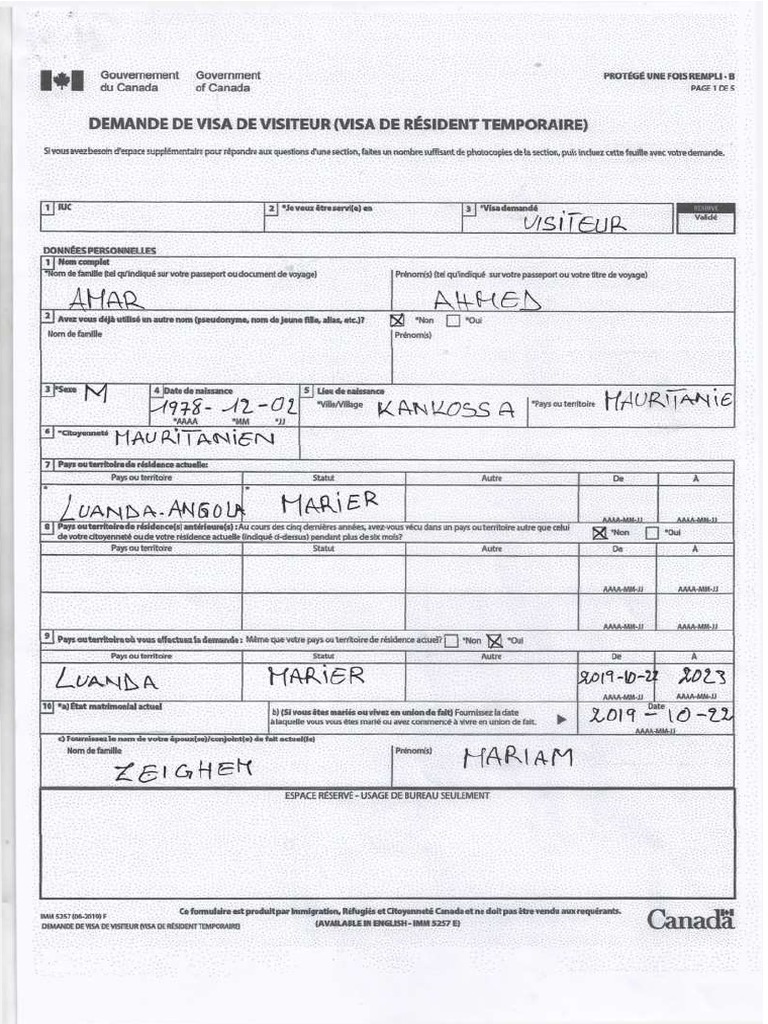 Gouvernement du Canada
Government of Canada
PROTÉGÉ UNE FOIS REMPLI - B
PAGE 1 DE 5
DEMANDE DE VISA DE VISITEUR (VISA DE RÉSIDENT TEMPORAIRE)
Si vous avez besoin d'espace supplémentaire pour répondre aux questions d'une section, faites un nombre suffisant de photocopies de la section, puis incluez cette feuille avec votre demande.
1 IUC
2 *Je veux être servi(e) en
3 *Visa demandé
VISITEUR
RÉSERVÉ
Validé
DONNÉES PERSONNELLES
1 Nom complet
*Nom de famille (tel qu'indiqué sur votre passeport ou document de voyage)
Prénom(s) (tel qu'indiqué sur votre passeport ou votre titre de voyage)
AMAR
AHMED
2 Avez vous déjà utilisé un autre nom (pseudonyme, nom de jeune fille, alias, etc.)?
*Non *Oui
Nom de famille
Prénom(s)
3 *Sexe M
4 Date de naissance
1978-12-02
*AAAA *MM *JJ
5 Lieu de naissance
*Ville/Village KANKOSSA
*Pays ou territoire MAURITANIE
6 *Citoyenneté MAURITANIEN
7 Pays ou territoire de résidence actuelle:
Pays ou territoire Statut Autre De À
* LUANDA-ANGOLA * MARIER
AAAA-MM-JJ AAAA-MM-JJ
8 Pays ou territoire de résidence(s) antérieure(s) : Au cours des cinq dernières années, avez-vous vécu dans un pays ou territoire autre que celui
de votre citoyenneté ou de votre résidence actuelle (indiqué ci-dessus) pendant plus de six mois?
*Non *Oui
Pays ou territoire Statut Autre De À
AAAA-MM-JJ AAAA-MM-JJ
AAAA-MM-JJ AAAA-MM-JJ
9 Pays ou territoire où vous effectuez la demande : Même que votre pays ou territoire de résidence actuel? *Non *Oui
Pays ou territoire Statut Autre De À
LUANDA MARIER 2019-10-22 2023
AAAA-MM-JJ AAAA-MM-JJ
10 *a) État matrimonial actuel
b) (Si vous êtes mariés ou vivez en union de fait) Fournissez la date
à laquelle vous vous êtes marié ou avez commencé à vivre en union de fait.
Date
2019-10-22
AAAA-MM-JJ
c) Fournissez le nom de votre époux(se)/conjoint(e) de fait actuel(le)
Nom de famille
Prénom(s)
ZEIGHEM
MARIAM
ESPACE RÉSERVÉ – USAGE DE BUREAU SEULEMENT
IMM 5257 (06-2019) F
DEMANDE DE VISA DE VISITEUR (VISA DE RÉSIDENT TEMPORAIRE)
Ce formulaire est produit par Immigration, Réfugiés et Citoyenneté Canada et ne doit pas être vendu aux requérants.
(AVAILABLE IN ENGLISH - IMM 5257 E)
Canada